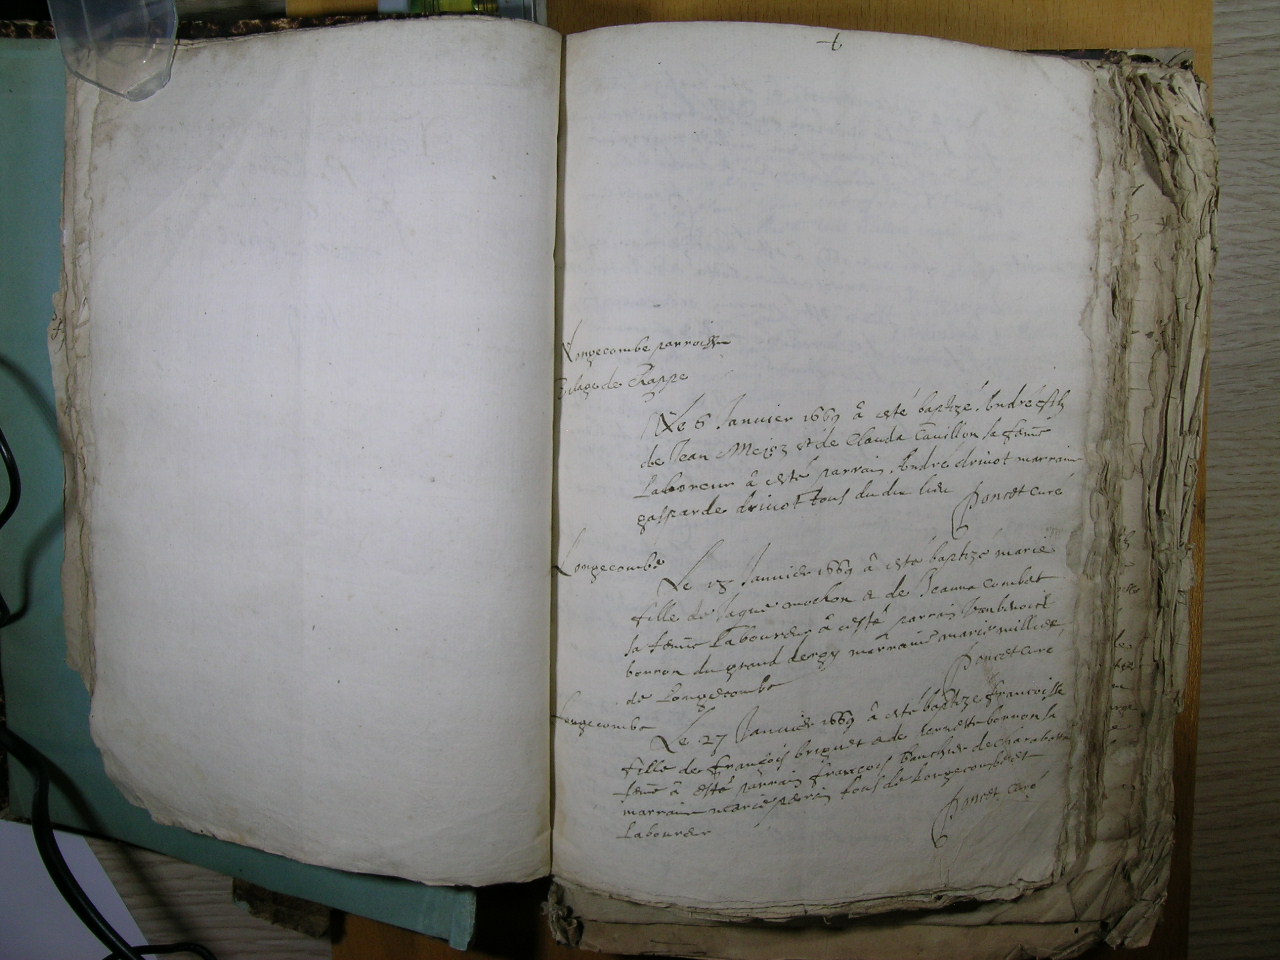 Longecombe parroisse
vilage de Chappe
Le 6 Janvier 1669 à esté baptizé André fils
de Jean Mejoz et de Clauda Cavillon sa femé
Laboreur à esté parrain Andre drivot marraine
gasparde drivot tous du du lieu Poncet curé
Longecombe
Le 18 Janvier 1669 à esté baptizé marie
fille de Jaque mochon & de Jeanna Combat
sa femé laboureur à esté parrain Jean benoist
borron du grand marraine marie millier
de Longecombe Poncet curé
Longecombe
Le 27 Janvier 1669 à esté baptizé francoise
fille de françois briquet & de borron sa
femé à esté parrain françois de
marraine marie tous de Longecombe et
Laboureur Poncet curé